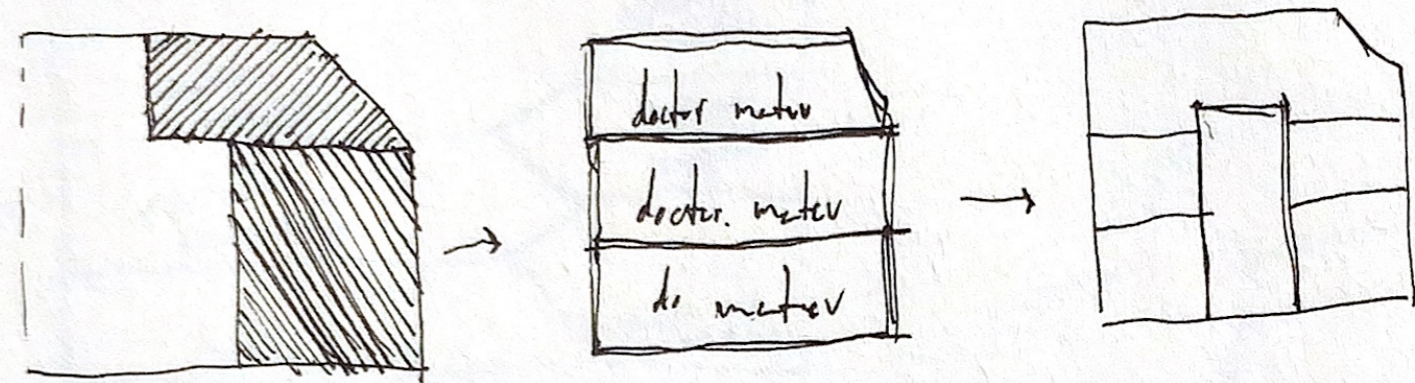 doctor mater
doctor. mater
do mater